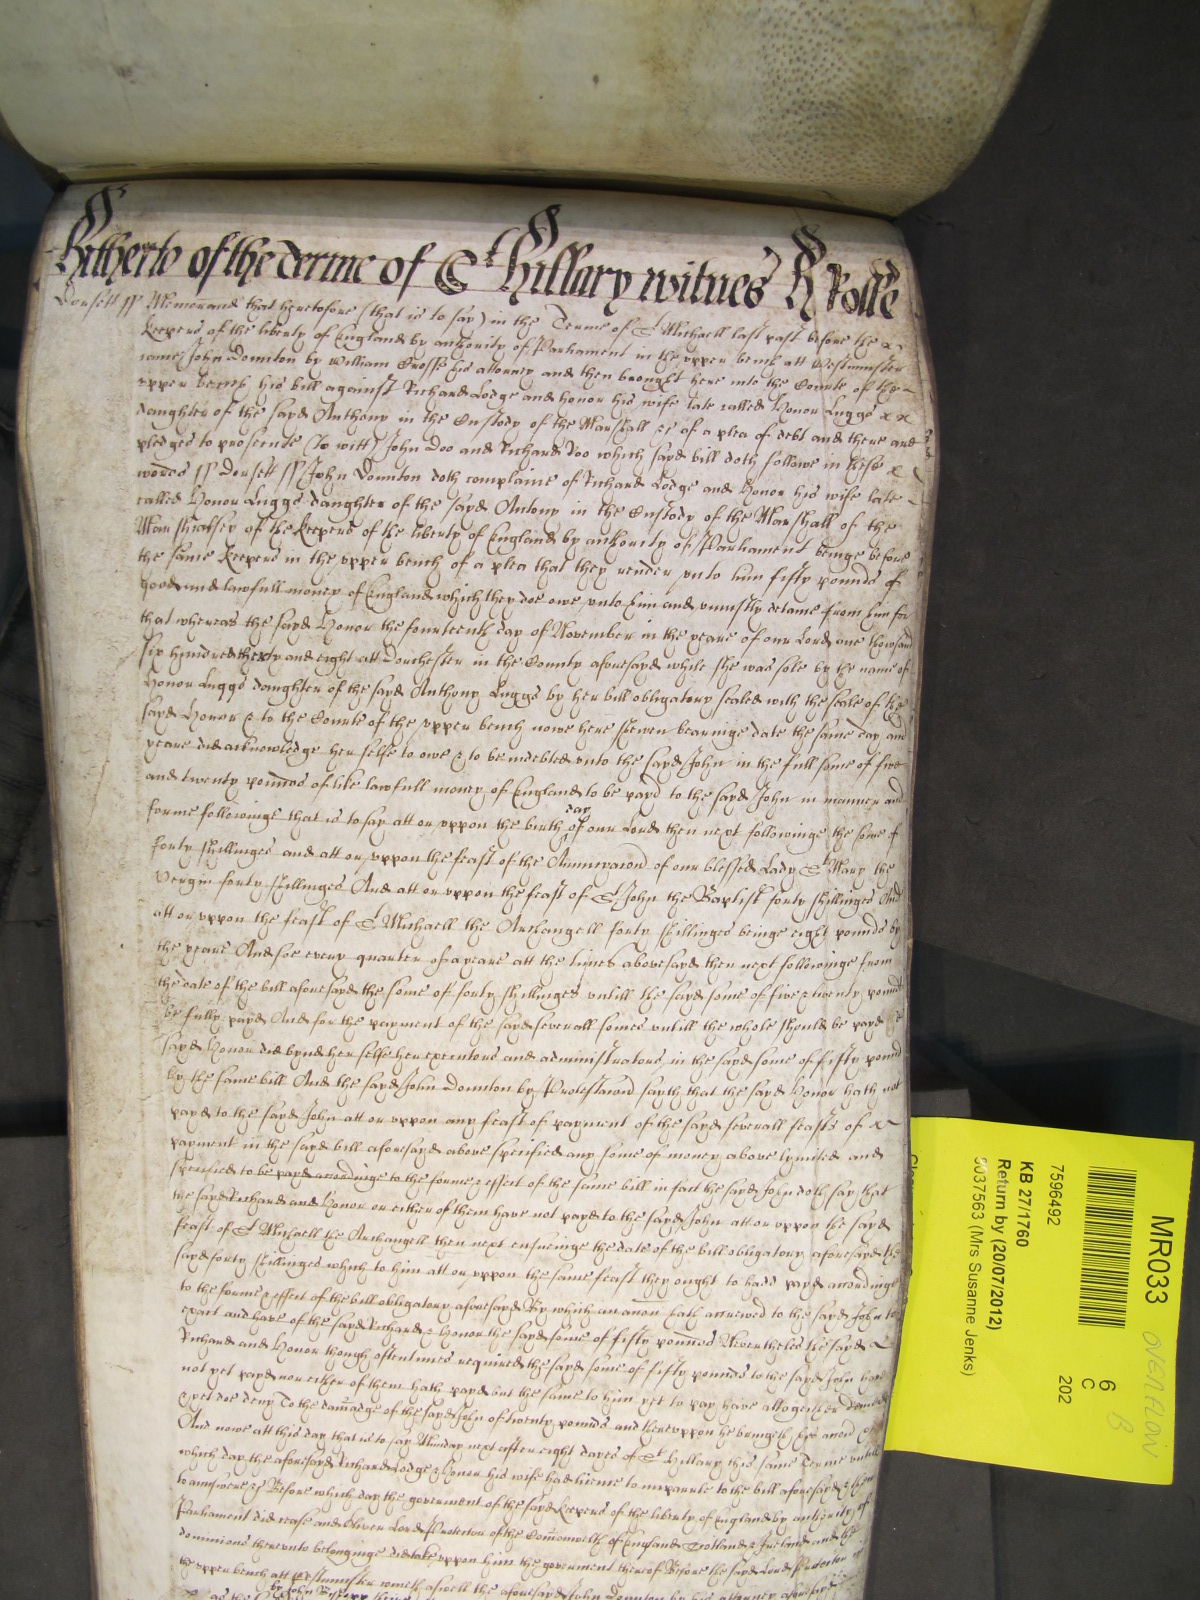 Hitherto of the terme of St Hillary witnes H Rolle
Dorsett ss Memorand that heretofore (that is to say) in the Terme of St Michaell last past before the
Keepers of the liberty of England by authority of Parliament in the upper bench att Westminster
came John Dounton by William Crosse his attorney and then brought here into the Courte of the
upper bench his bill against Richard Lodge and Honor his wife late called Honor Luggs
daughter of the sayd Anthony in the Custody of the Marshall &c of a plea of debt and there are
pledges to prosecute (to witt) John Doo and Richard Roo which sayd bill doth followe in these
words ss Dorsett ss John Dounton doth complaine of Richard Lodge and Honor his wife late
called Honor Luggs daughter of the sayd Antony in the Custody of the Marshall of the
Marshalsey of the Keepers of the liberty of England by authority of Parliament beinge before
the same Keepers in the upper bench of a plea that they render unto him fifty pounds of
good and lawfull money of England which they doe owe unto him and uniustly detaine from him for
that whereas the sayd Honor the fourteenth day of November in the yeare of our Lord one thowsand
six hundred therty and eight att Dorchester in the County aforesayd while she was sole by the name of
Honor Luggs daughter of the sayd Anthony Luggs by her bill obligatory sealed with the seale of the
sayd Honor & to the Courte of the upper bench nowe here shewen bearinge date the same day and
yeare did acknowledge her selfe to owe & to be indebted unto the sayd John in the full some of five
and twenty pounds of like lawfull money of England to be payd to the sayd John in manner and
forme followinge that is to say att or uppon the birth day of our Lord then next followinge the some of
forty shillinges and att or uppon the feast of the Annunciacon of our blessed Lady St Mary the
Vergin forty shillinges And att or uppon the feast of St John the Baptist forty shillinges And
att or uppon the feast of St Michaell the Archangell forty shillinges beinge eight pounds by
the yeare And soe every quarter of a yeare att the times abovesayd then next followinge from
the date of the bill aforesayd the some of forty shillinges untill the sayd some of five & twenty pounds
be fully payd And for the payment of the sayd severall somes untill the whole should be payd the
sayd Honor did bynd her selfe her executors and administrators in the sayd some of fifty pounds
by the same bill And the sayd John Dounton by Protestacon sayth that the sayd Honor hath not
payd to the sayd John att or uppon any feast of payment of the sayd severall feasts of
payment in the sayd bill aforesayd above specified any some of money above lymited and
specified to be payd accordinge to the forme & effect of the same bill in fact the sayd John doth say that
the sayd Richard and Honor or either of them have not payd to the sayd John att or uppon the sayd
feast of St Michaell the Archangell then next ensueinge the date of the bill obligatory aforesayd the
sayd forty shillinges which to him att or uppon the same feast they ought to have payd accordinge
to the forme & effect of the bill obligatory aforesayd By which an accon hath accrewed to the sayd John to
exact and have of the sayd Richard & Honor the sayd some of fifty pounds Neverthelesse the sayd
Richard and Honor though oftentimes required the sayd some of fifty pounds to the sayd John have
not yet payd nor either of them hath payd but the same to him yet to pay have altogether denied
& yet doe deny To the damadge of the sayd John of twenty pounds and thereuppon he bringeth his
And nowe att this day that is to say Munday next after eight dayes of St Hillary this same Terme untill
which day the aforesayd Richard Lodge & Honor his wife had licence to imparle to the bill aforesayd & then
to answere &c Before which day the goverment of the sayd Keepers of the liberty of England by authority of
Parliament did cease and Oliver Lord Protector of the Comonwelth of England Scotland & Ireland and the
dominions thereunto belonginge did take uppon him the goverment thereof Before the sayd Lord Protector in
the upper bench att Westminster cometh aswell the aforesayd John Dounton by his attorney aforesayd
by John
MR033
OVERFLOW
B
6
C
202
7596492
KB 27/1760
Return by (20/07/2012)
5037563 (Mrs Susanne Jenks)